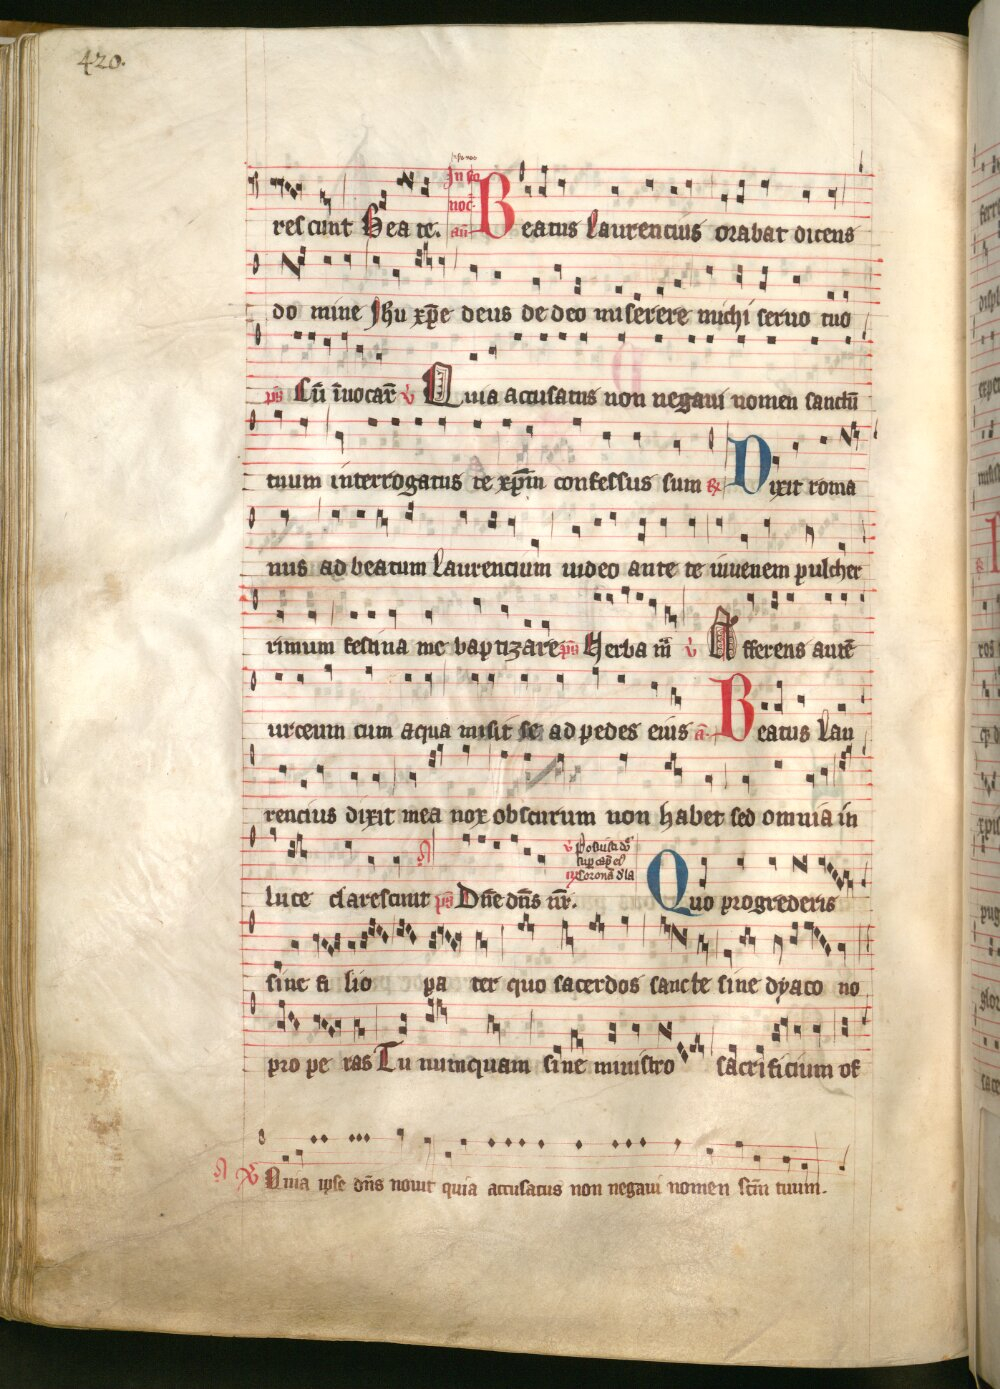 420.
rescunt Beate. In ẜo noc̄. an̄ Beatus Laurencius orabat dicens
domine Jhu xp̄e deus de deo miserere michi seruo tuo
ps̄ Cū īuocar̄ v̄ Quia accusatus non negaui nomen sanctū
tuum interrogatus te xp̄m confessus sum ℞ Dixit roma
nus ad beatum Laurencium uideo ante te iuuenem pulcher
rimum festina me baptizare ps̄ Uerba m̄ v̄ Afferens autē
urceum cum aqua misit se ad pedes eius a̅ Beatus Lau
rencius dixit mea nox obscurum non habet sed omnia in
v̄ Posuisti dō
sup cap̄ eī
Coronā d̄ la
luce clarescunt ps̄ Dn̄e dn̄s nr̄. Quo progrederis
sine filio pater quo sacerdos sancte sine dyaco no
properas Tu nunquam sine ministro sacrificium of
Quia ipse dn̄s nouit quia accusatus non negaui nomen sc̄m tuum.